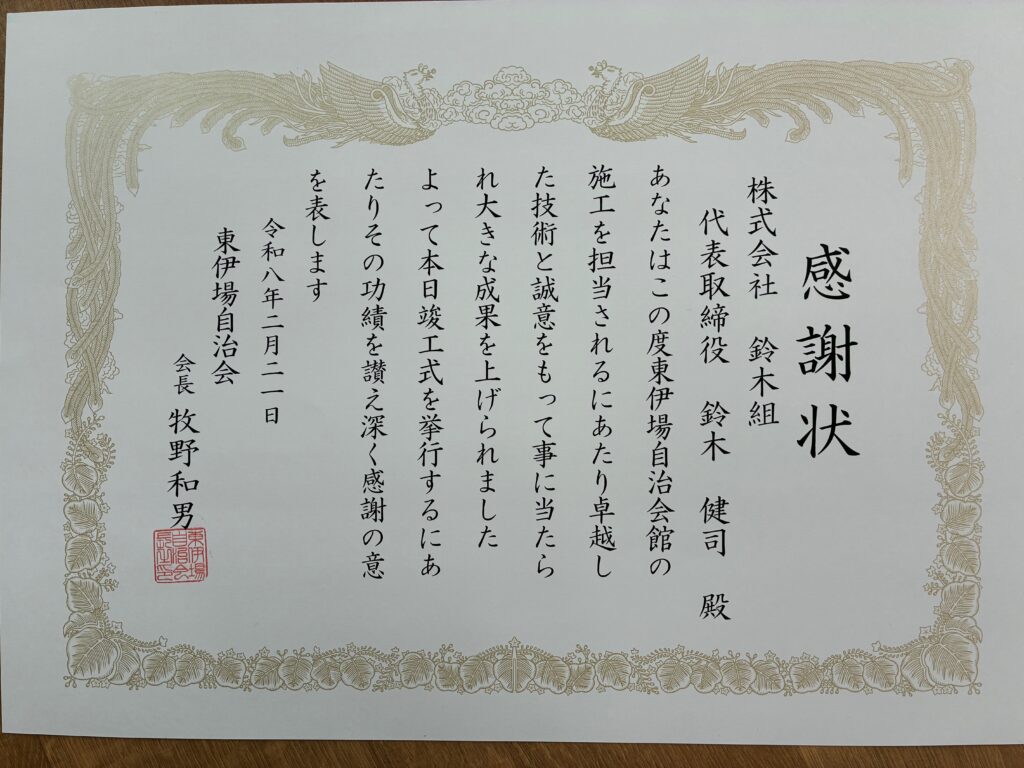 感謝状
株式会社　鈴木組
代表取締役　鈴木　健司　殿
あなたはこの度東伊場自治会館の
施工を担当されるにあたり卓越し
た技術と誠意をもって事に当たら
れ大きな成果を上げられました
よって本日竣工式を挙行するにあ
たりその功績を讃え深く感謝の意
を表します
令和八年二月二一日
東伊場自治会
会長　牧野和男
東伊場
自治会
長之印